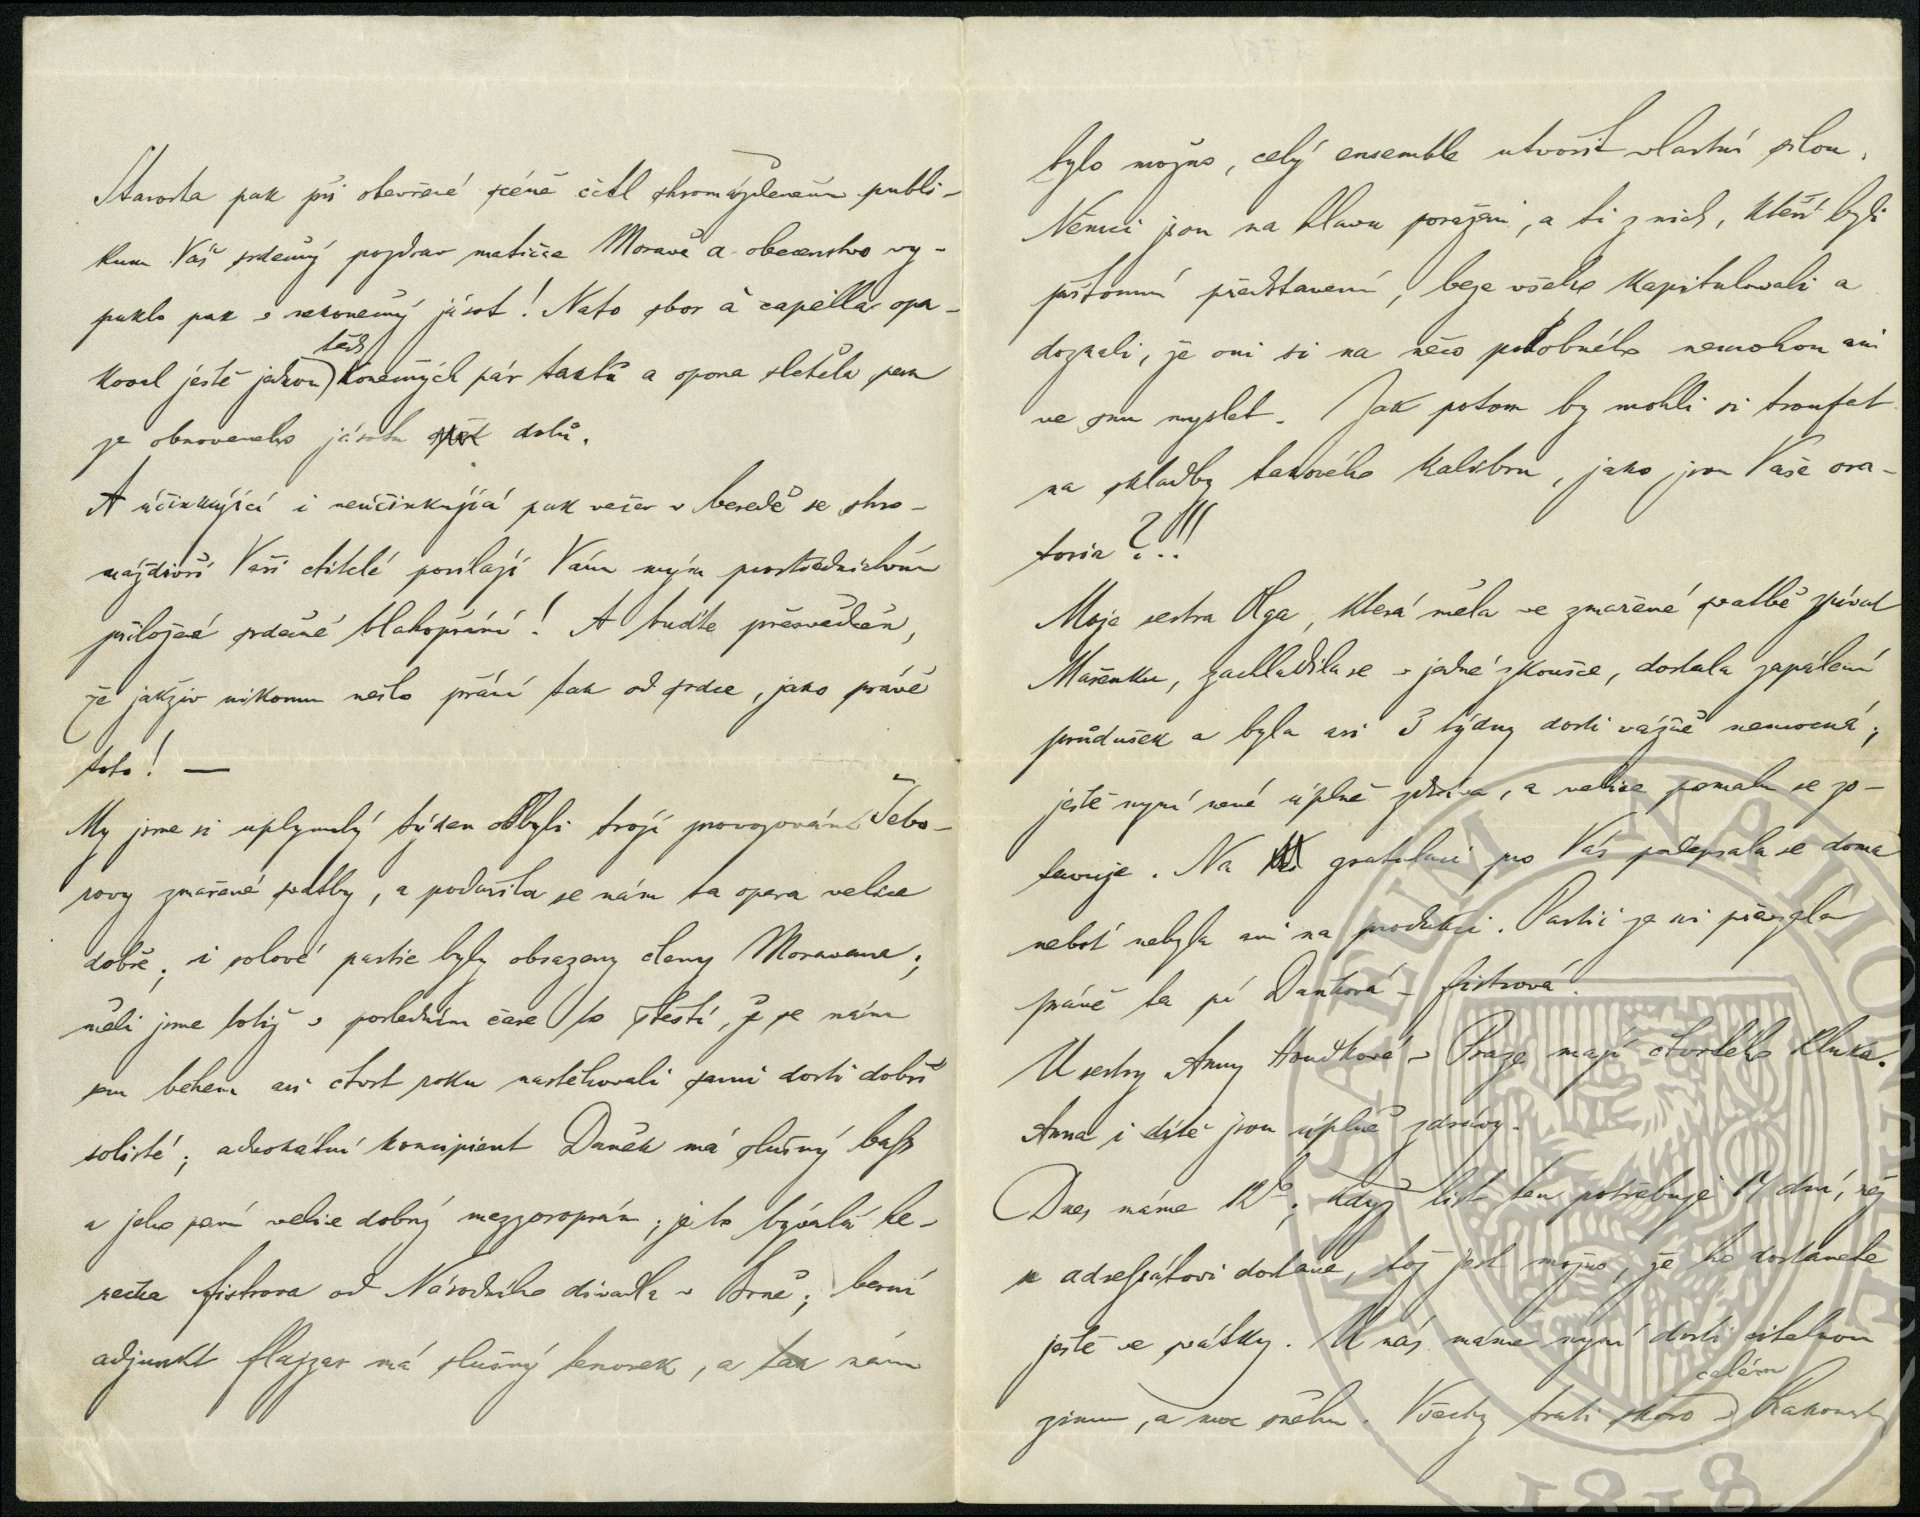 Starosta pak při otevřené scéně četl shromážděnému publi-
kum Váš srdečný pozdrav matičce Moravě a obecenstvo vy-
puklo pak v nekonečný jásot! Nato sbor à capella opa-
koval ještě jednou těch konečných pár taktů a opona sletěla sem
za obnoveného jásotu dolů.
A účinkující i neúčinkující pak večer v besedě se shro-
máždivší Vaši ctitelé posílají Vám mým prostřednictvím
přiložené srdečné blahopřání! A buďte přesvědčen,
že jakživ nikomu nešlo přání tak od srdce, jako právě
toto! —
My jsme si uplynulý týden odbyli trojí provozování Šebo-
rovy zmařené svatby, a podařila se nám ta opera velice
dobře; i solové partie byly obsazeny členy Moravana;
měli jsme totiž v posledním čase to štěstí, že se nám
sem během asi čtvrt roku nastěhovali samí dosti dobří
solisté; advokátní koncipient Daněk má slušný bass
a jeho paní velice dobrý mezzosoprán; je to bývalá he-
rečka Fistrova od Národního divadla v Brně; berní
adjunkt Flajzar má slušný tenorek, a tak nám
bylo možno, celý ensemble utvořit vlastní silou.
Němci jsou na hlavu poraženi, a ti z nich, kteří byli
přítomni představení, beze všeho kapitulovali a
doznali, že oni si na něco podobného nemohou ani
ve snu myslet. Jak potom by mohli si troufat
na skladby takového kalibru, jako jsou Vaše ora-
toria?!!!
Moje sestra Olga, která měla ve zmařené svatbě zpívat
Mařenku, zachladila se v jedné zkoušce, dostala zapálení
průdušek a byla asi 3 týdny dosti vážně nemocná;
ještě nyní není úplně zdráva, a velice pomalu se zo-
tavuje. Na gratulaci pro Vás podepsala se doma
neboť nebyla ani na produkci. Partii za ni převzala
právě ta pí Daňková-Fistrová.
U sestry Anny Houdkové v Praze mají čtvrtého kluka.
Anna i dítě jsou úplně zdrávy.
Dnes máme 12ho; když list ten potřebuje 14 dní, než
se adresátovi dostane, tož jest možno, že ho dostanete
ještě ve svátky. U nás máme nyní dosti citelnou
zimu, a moc sněhu. Všechny trati skoro v celém Rakousku
MUSAEUM NATIONALE
1818